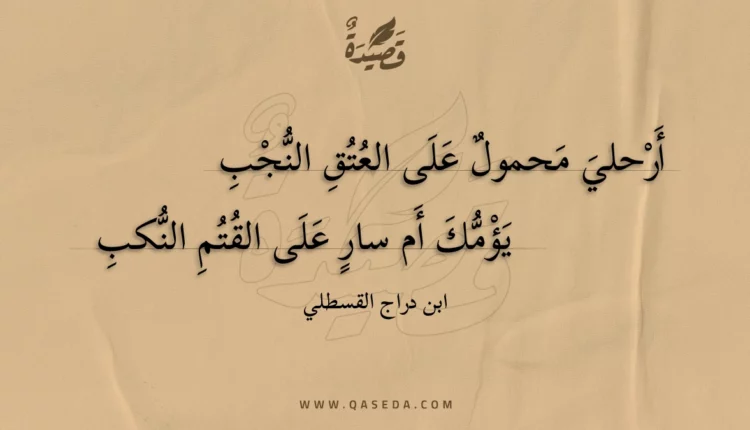 قَصِيدَةٌ
أَرْحليَ مَحمولٌ عَلَى العُتُقِ النُّجْبِ
يَؤْمُّكَ أَم سارٍ عَلَى القُتُمِ النُّكبِ
ابن دراج القسطلي
WWW.QASEDA.COM